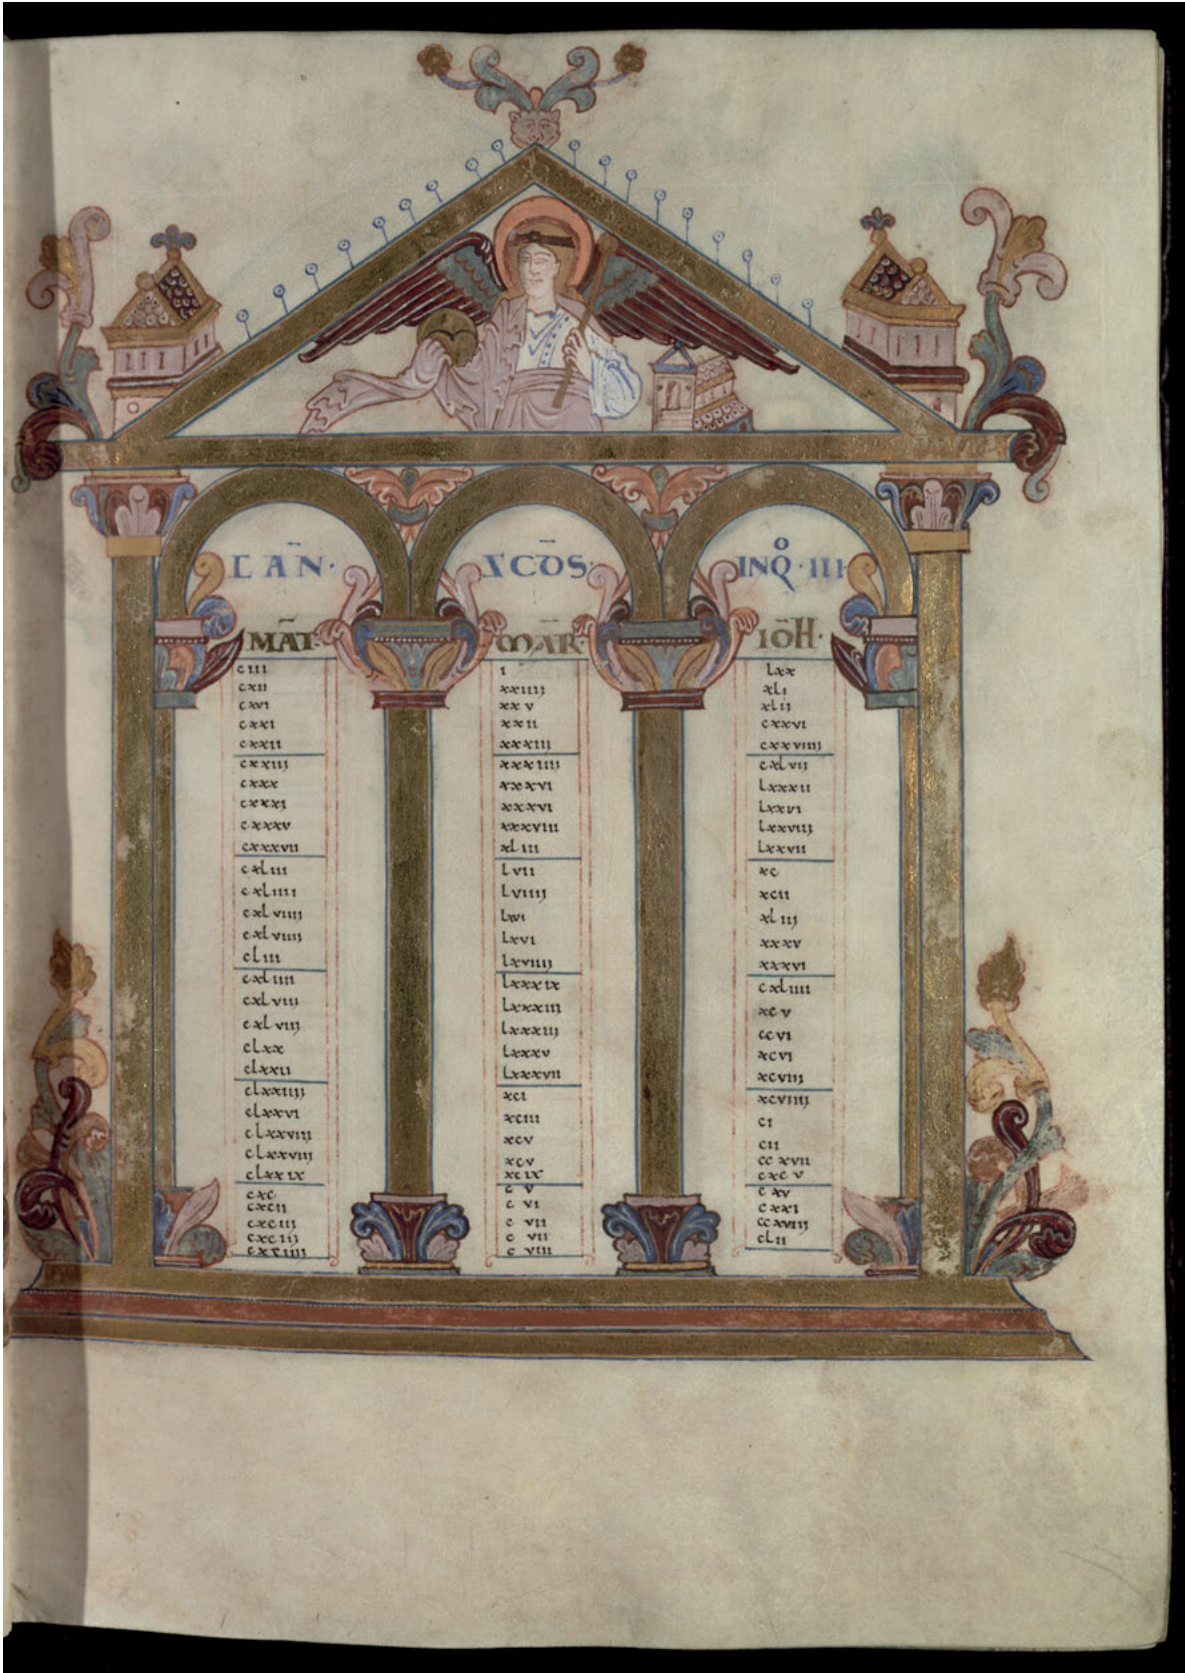 CAN· SCDS· INQ·III·
MAT· MAR· IOH·
ciii i lxx
cxii xxiiij xli
cxvi xxv xlij
cxxi xxii cxxvi
cxxii xxxiij cxxviiij
cxxiij xxxiiij cxlvij
cxxx xxxvi lxxxii
cxxxi xxxvi lxxvi
cxxxv xxxviii lxxviiij
cxxxvii xliii lxxvii
cxliii lvii xc
cxliiii lviiij xcii
cxlviiij lxvi xliij
cxlviiij lxvi xxxv
cliii lxviiij xxxvi
cxliiii lxxxix cxliiii
cxlviij lxxxiij xcv
cxlviij lxxxiij ccvi
clxx lxxxv xcvi
clxxii lxxxvii xcviij
clxxiiij xci xcviiij
clxxvi xciii ci
clxxviij xcv cii
clxxviij xcv ccxvii
clxxix xcix cxcv
cxc cv cxv
cxcii cvi cxxi
cxciij cvii ccxviij
cxciij cvii clii
cxciiij cviii